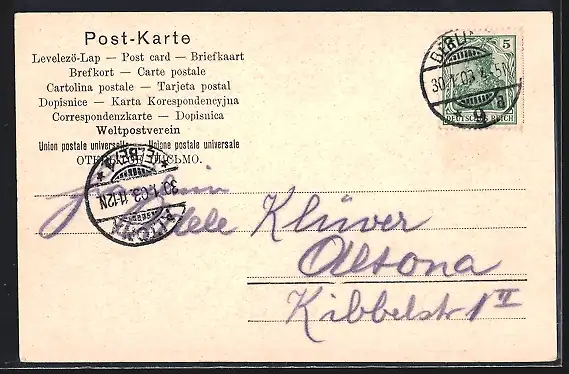 Post-Karte
Levelező-Lap — Post card — Briefkaart
Brefkort — Carte postale
Cartolina postale — Tarjeta postal
Dopisnice — Karta Korespondencyjna
Correspondenzkarte — Dopisnica
Weltpostverein
Union postale universelle — Unione postale universale
ОТКРЫТОЕ ПИСЬМО.
BERLIN
30.1.03
9 a
5
DEUTSCHES REICH
ALTONA
30.1.03 11-12N
Klüver
Altona
Kibbelstr 1 II